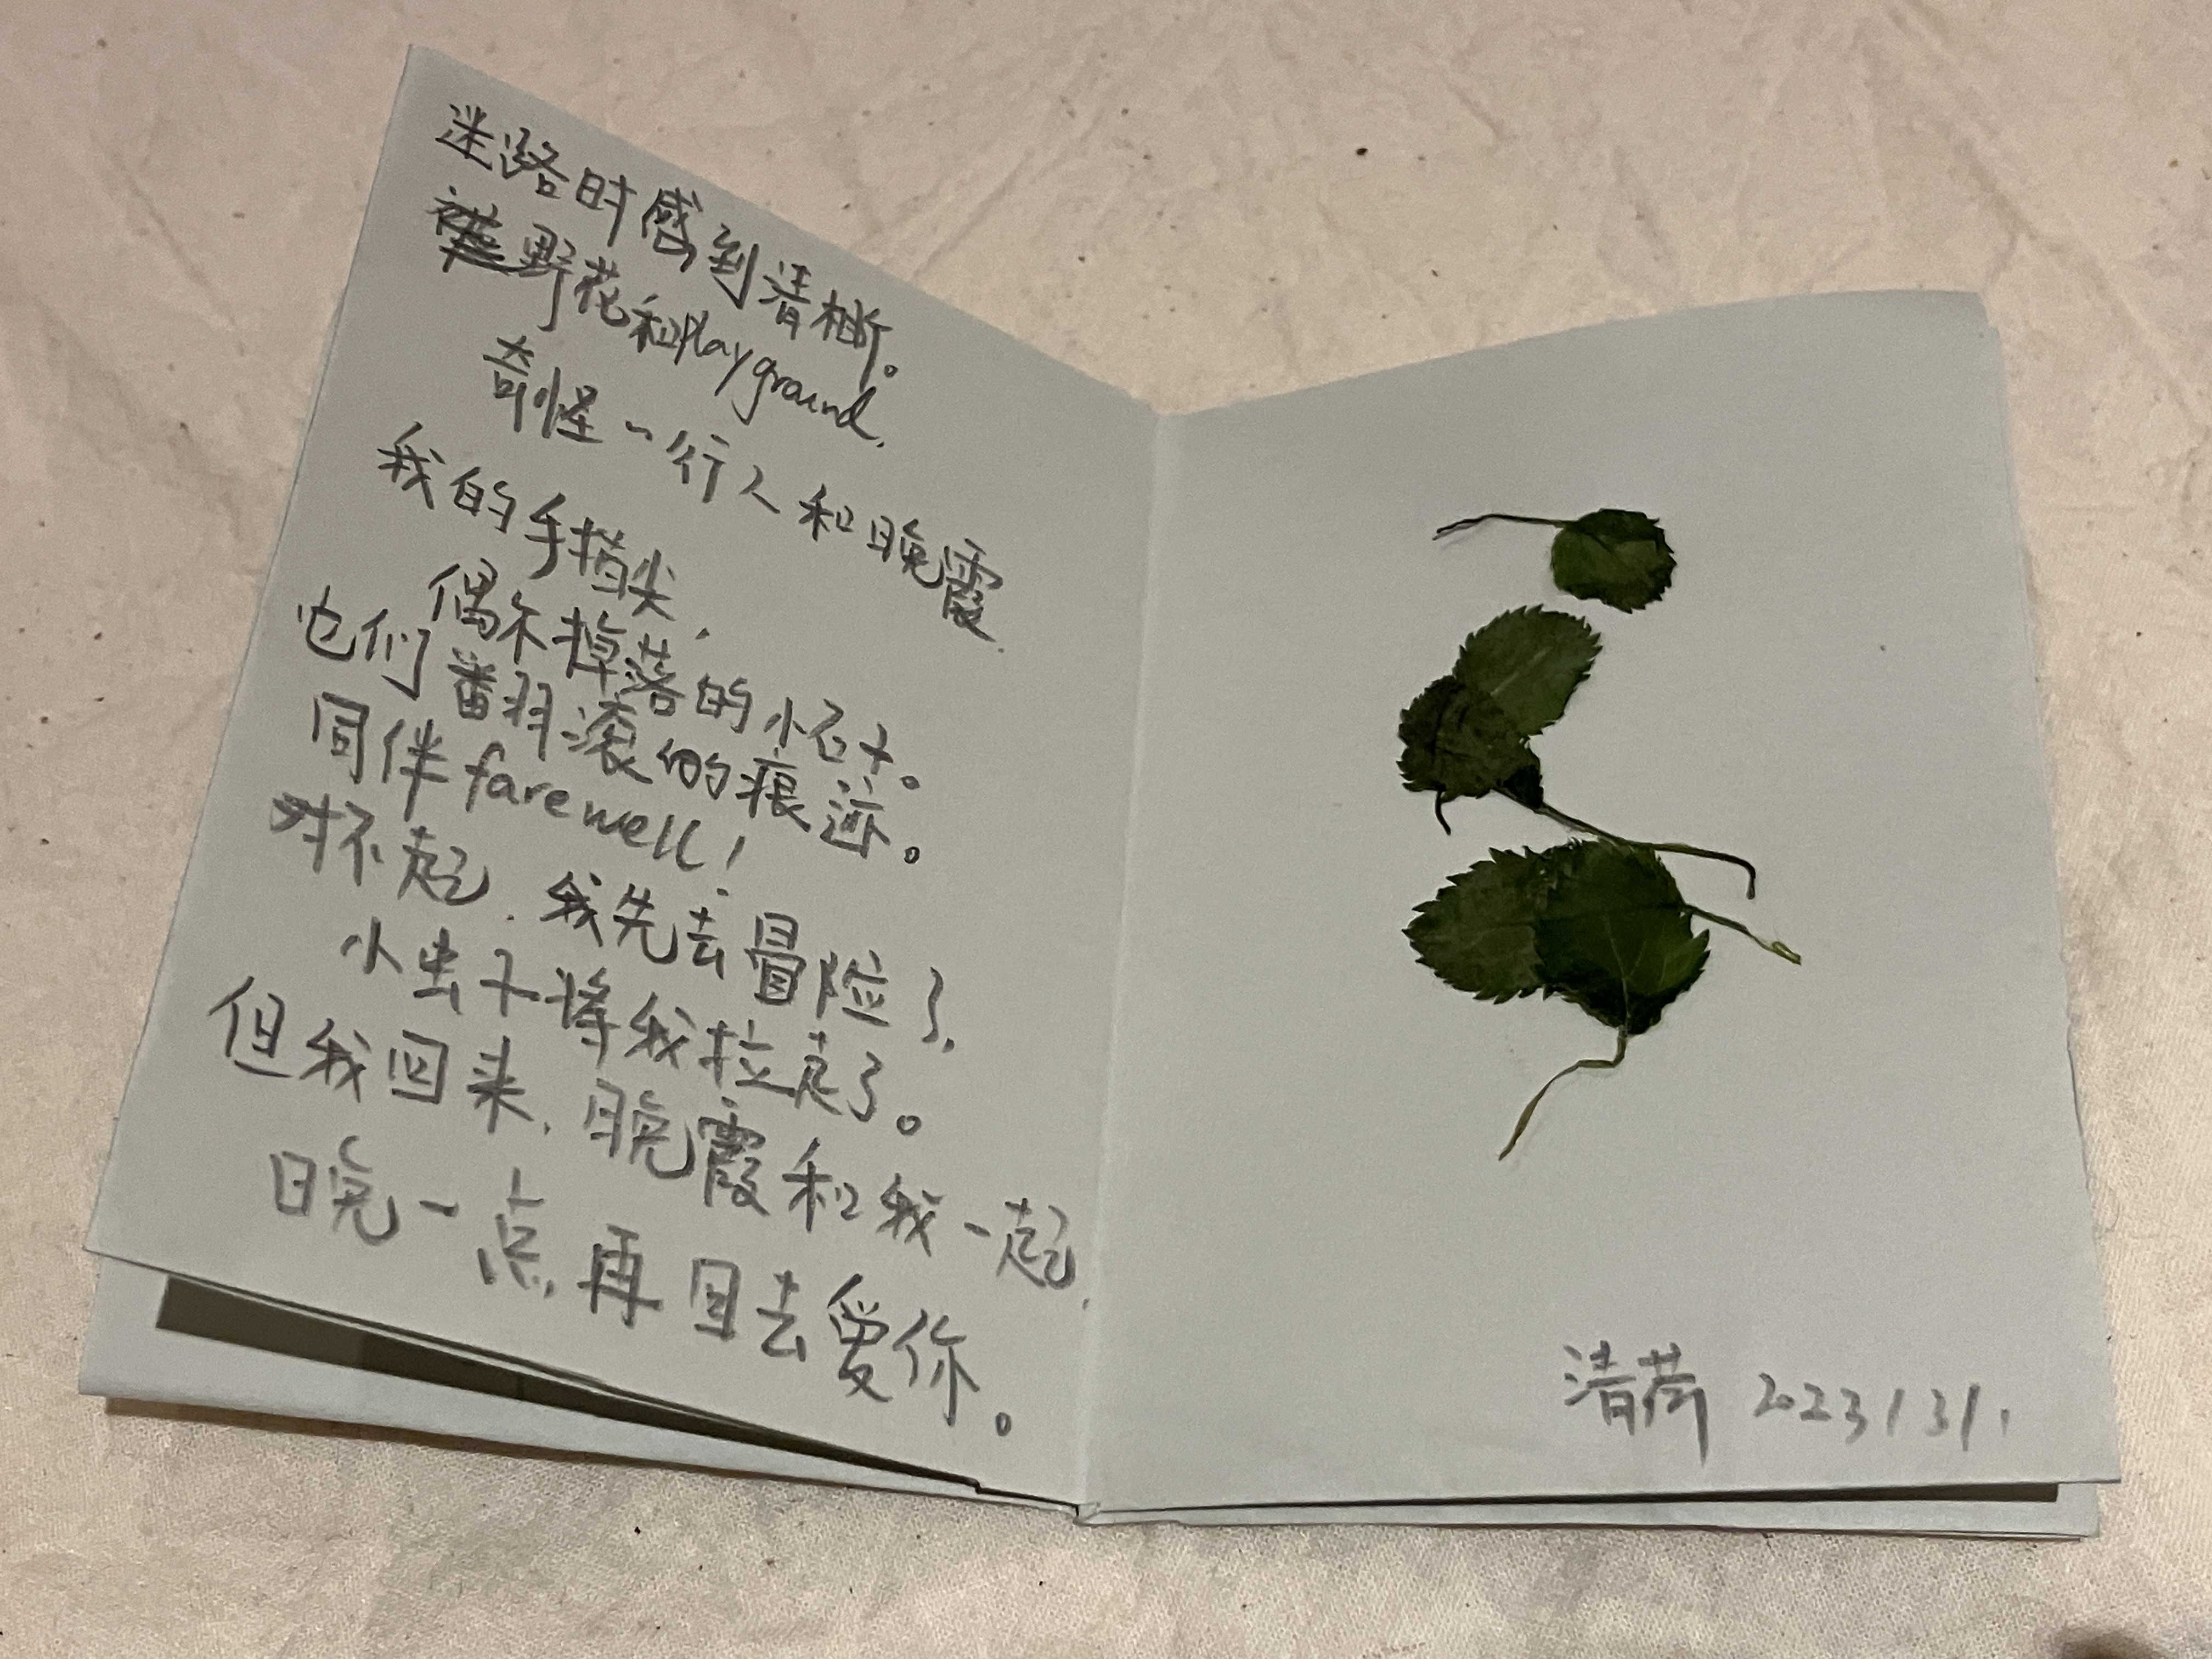 迷路时感到清晰。
野花和playground,
奇怪一行人和晚霞.
我的手指尖,
偶尔掉落的小石子。
它们翻滚的痕迹。
同伴farewell!
对不起.我先去冒险了,
小虫子将我拉走了。
但我回来,晚霞和我一起,
晚一点再回去爱你。
清荷 2023/31.